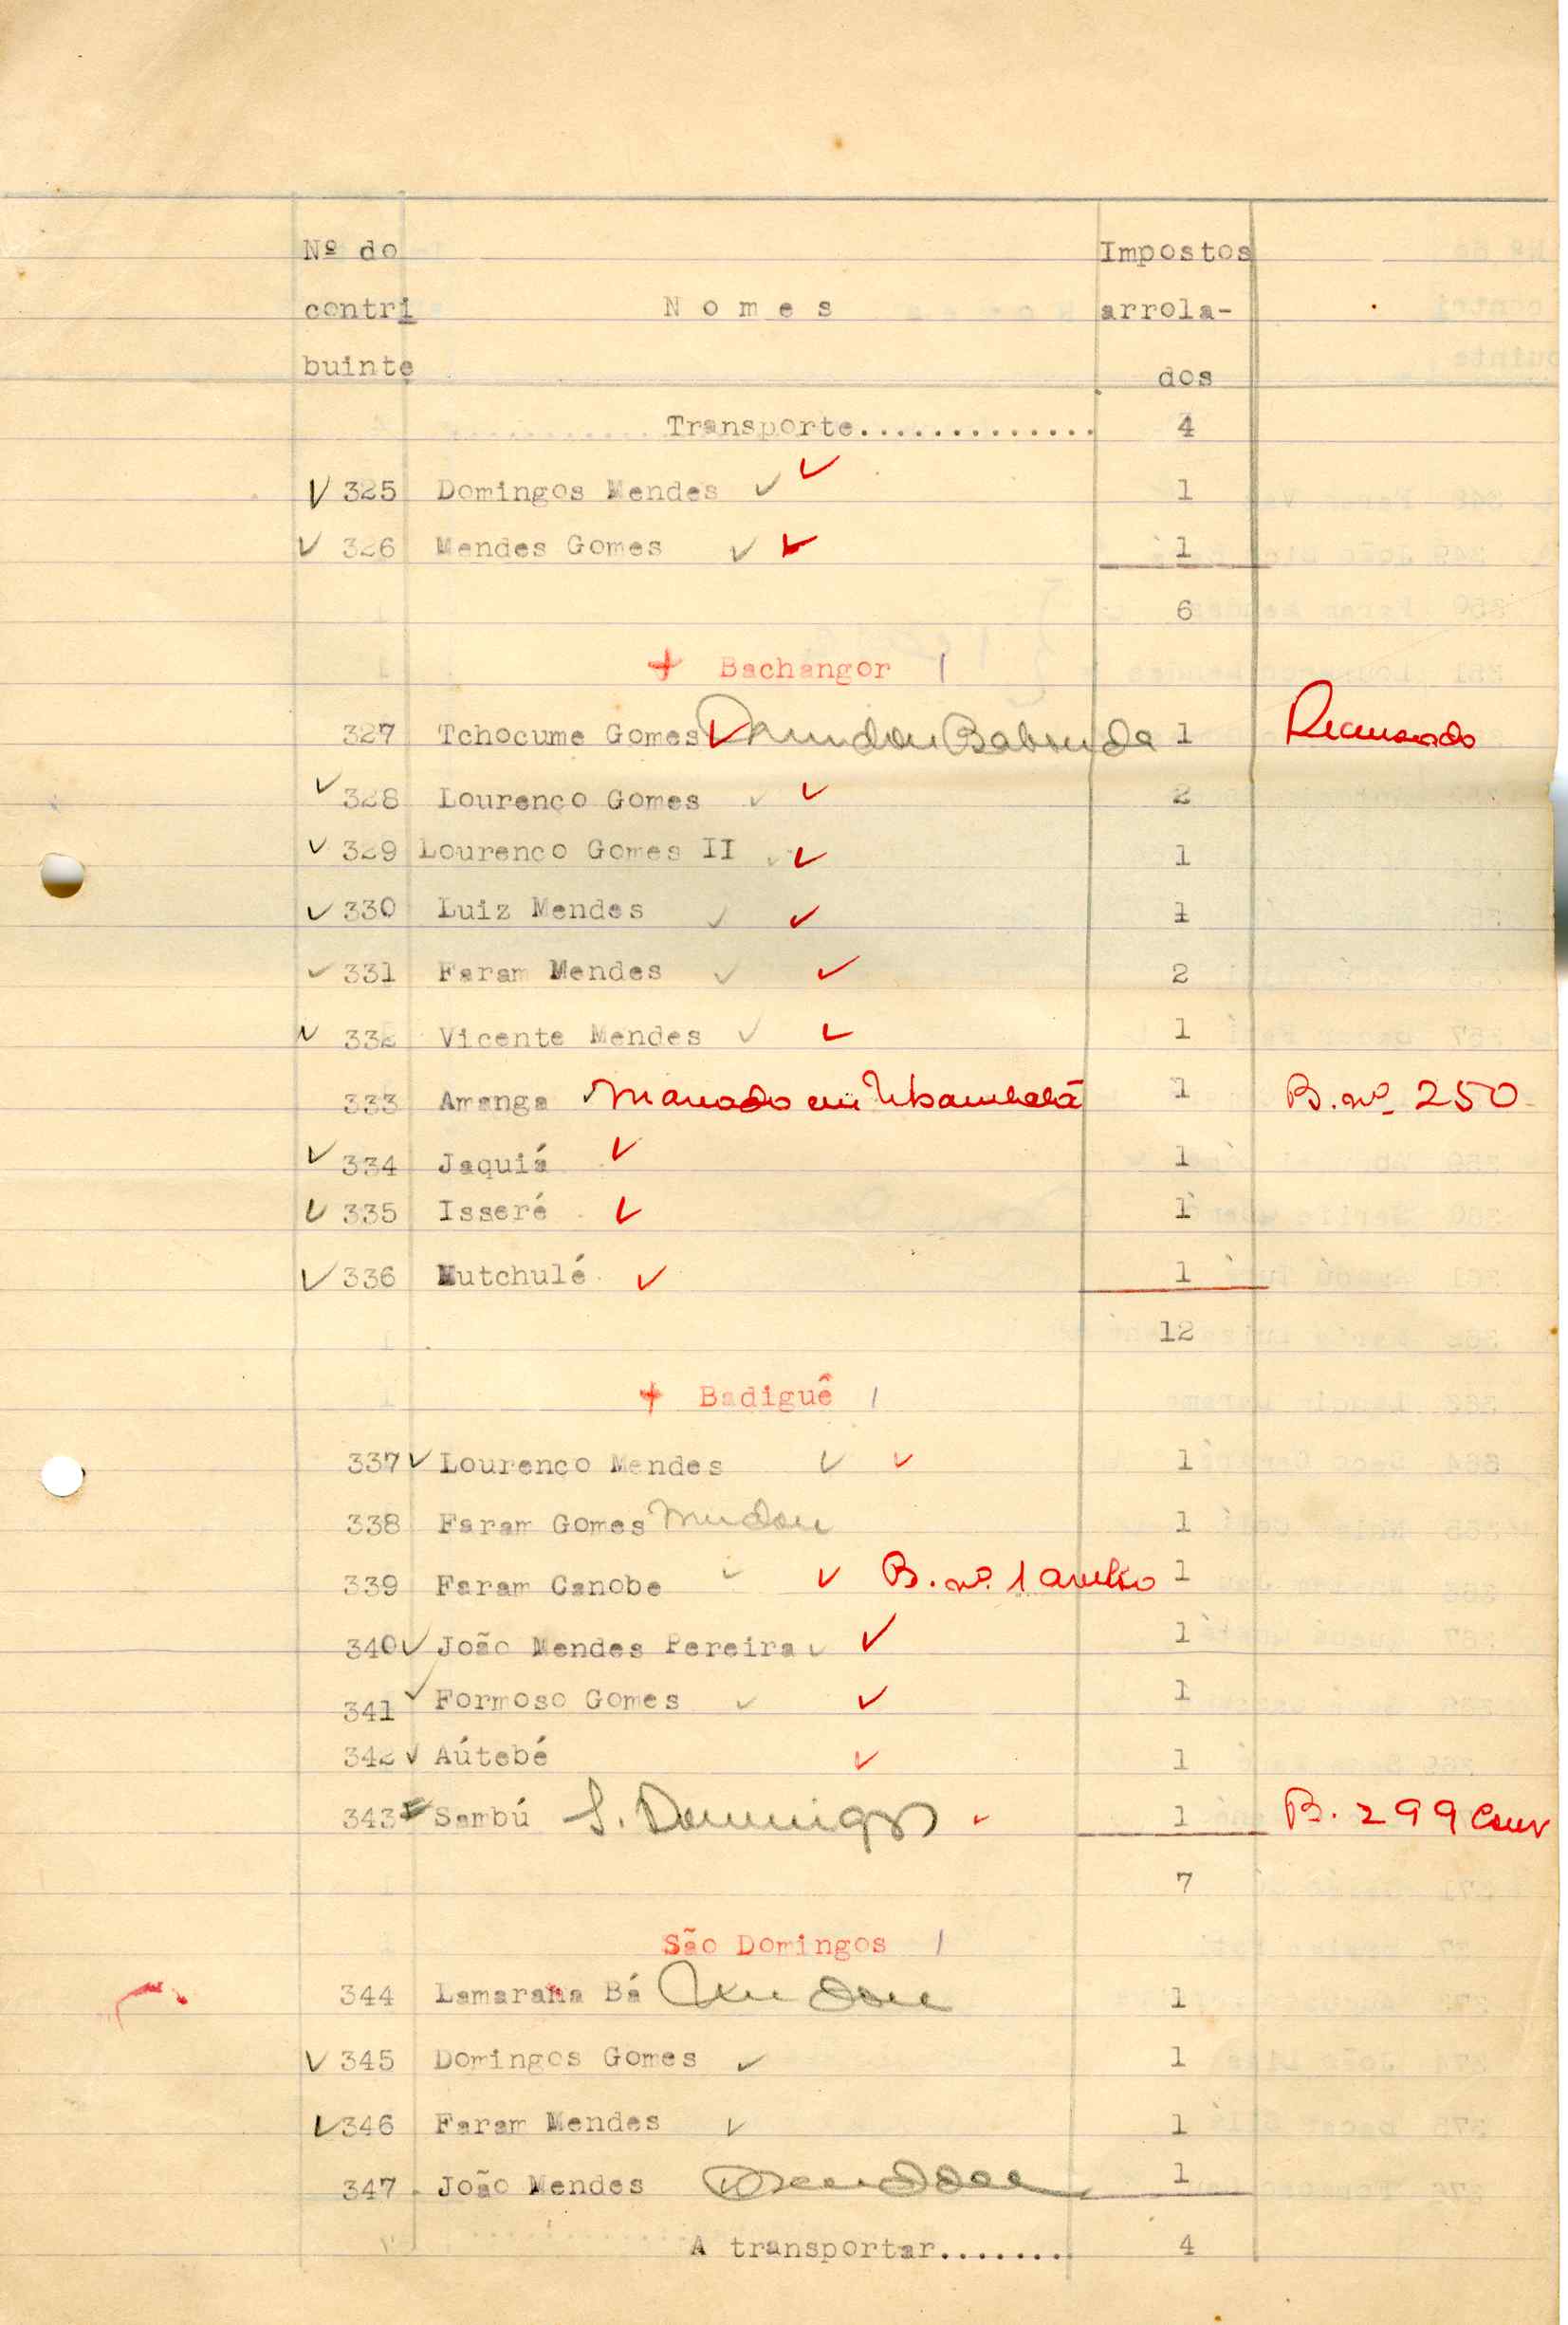 Nº do Impostos
contri N o m e s arrola-
buinte dos
Transporte............. 4
325 Domingos Mendes 1
326 Mendes Gomes 1
6
+ Bachangor
327 Tchocume Gomes Mudou 1 Recenseado
328 Lourenço Gomes 2
329 Lourenço Gomes II 1
330 Luiz Mendes 1
331 Faram Mendes 2
332 Vicente Mendes 1
333 Amanga em 1 B. nº 250
334 Jaquiá 1
335 Isseré 1
336 Mutchulé 1
12
+ Badiguê
337 Lourenço Mendes 1
338 Faram Gomes Mudou 1
339 Faram Canobe B. nº 1 1
340 João Mendes Pereira 1
341 Formoso Gomes 1
342 Aútebé 1
343 Sambú S. Domingos 1 B. 299
7
São Domingos
344 Lamarana Bá Mudou 1
345 Domingos Gomes 1
346 Faram Mendes 1
347 João Mendes Mudou 1
A transportar....... 4